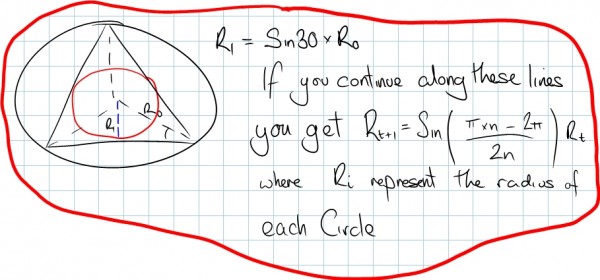 R₁ = Sin30 × R₀
If you continue along these lines
you get R_{t+1} = Sin((π×n − 2π)/2n) R_t
where Ri represent the radius of
each Circle
R₀
R₁